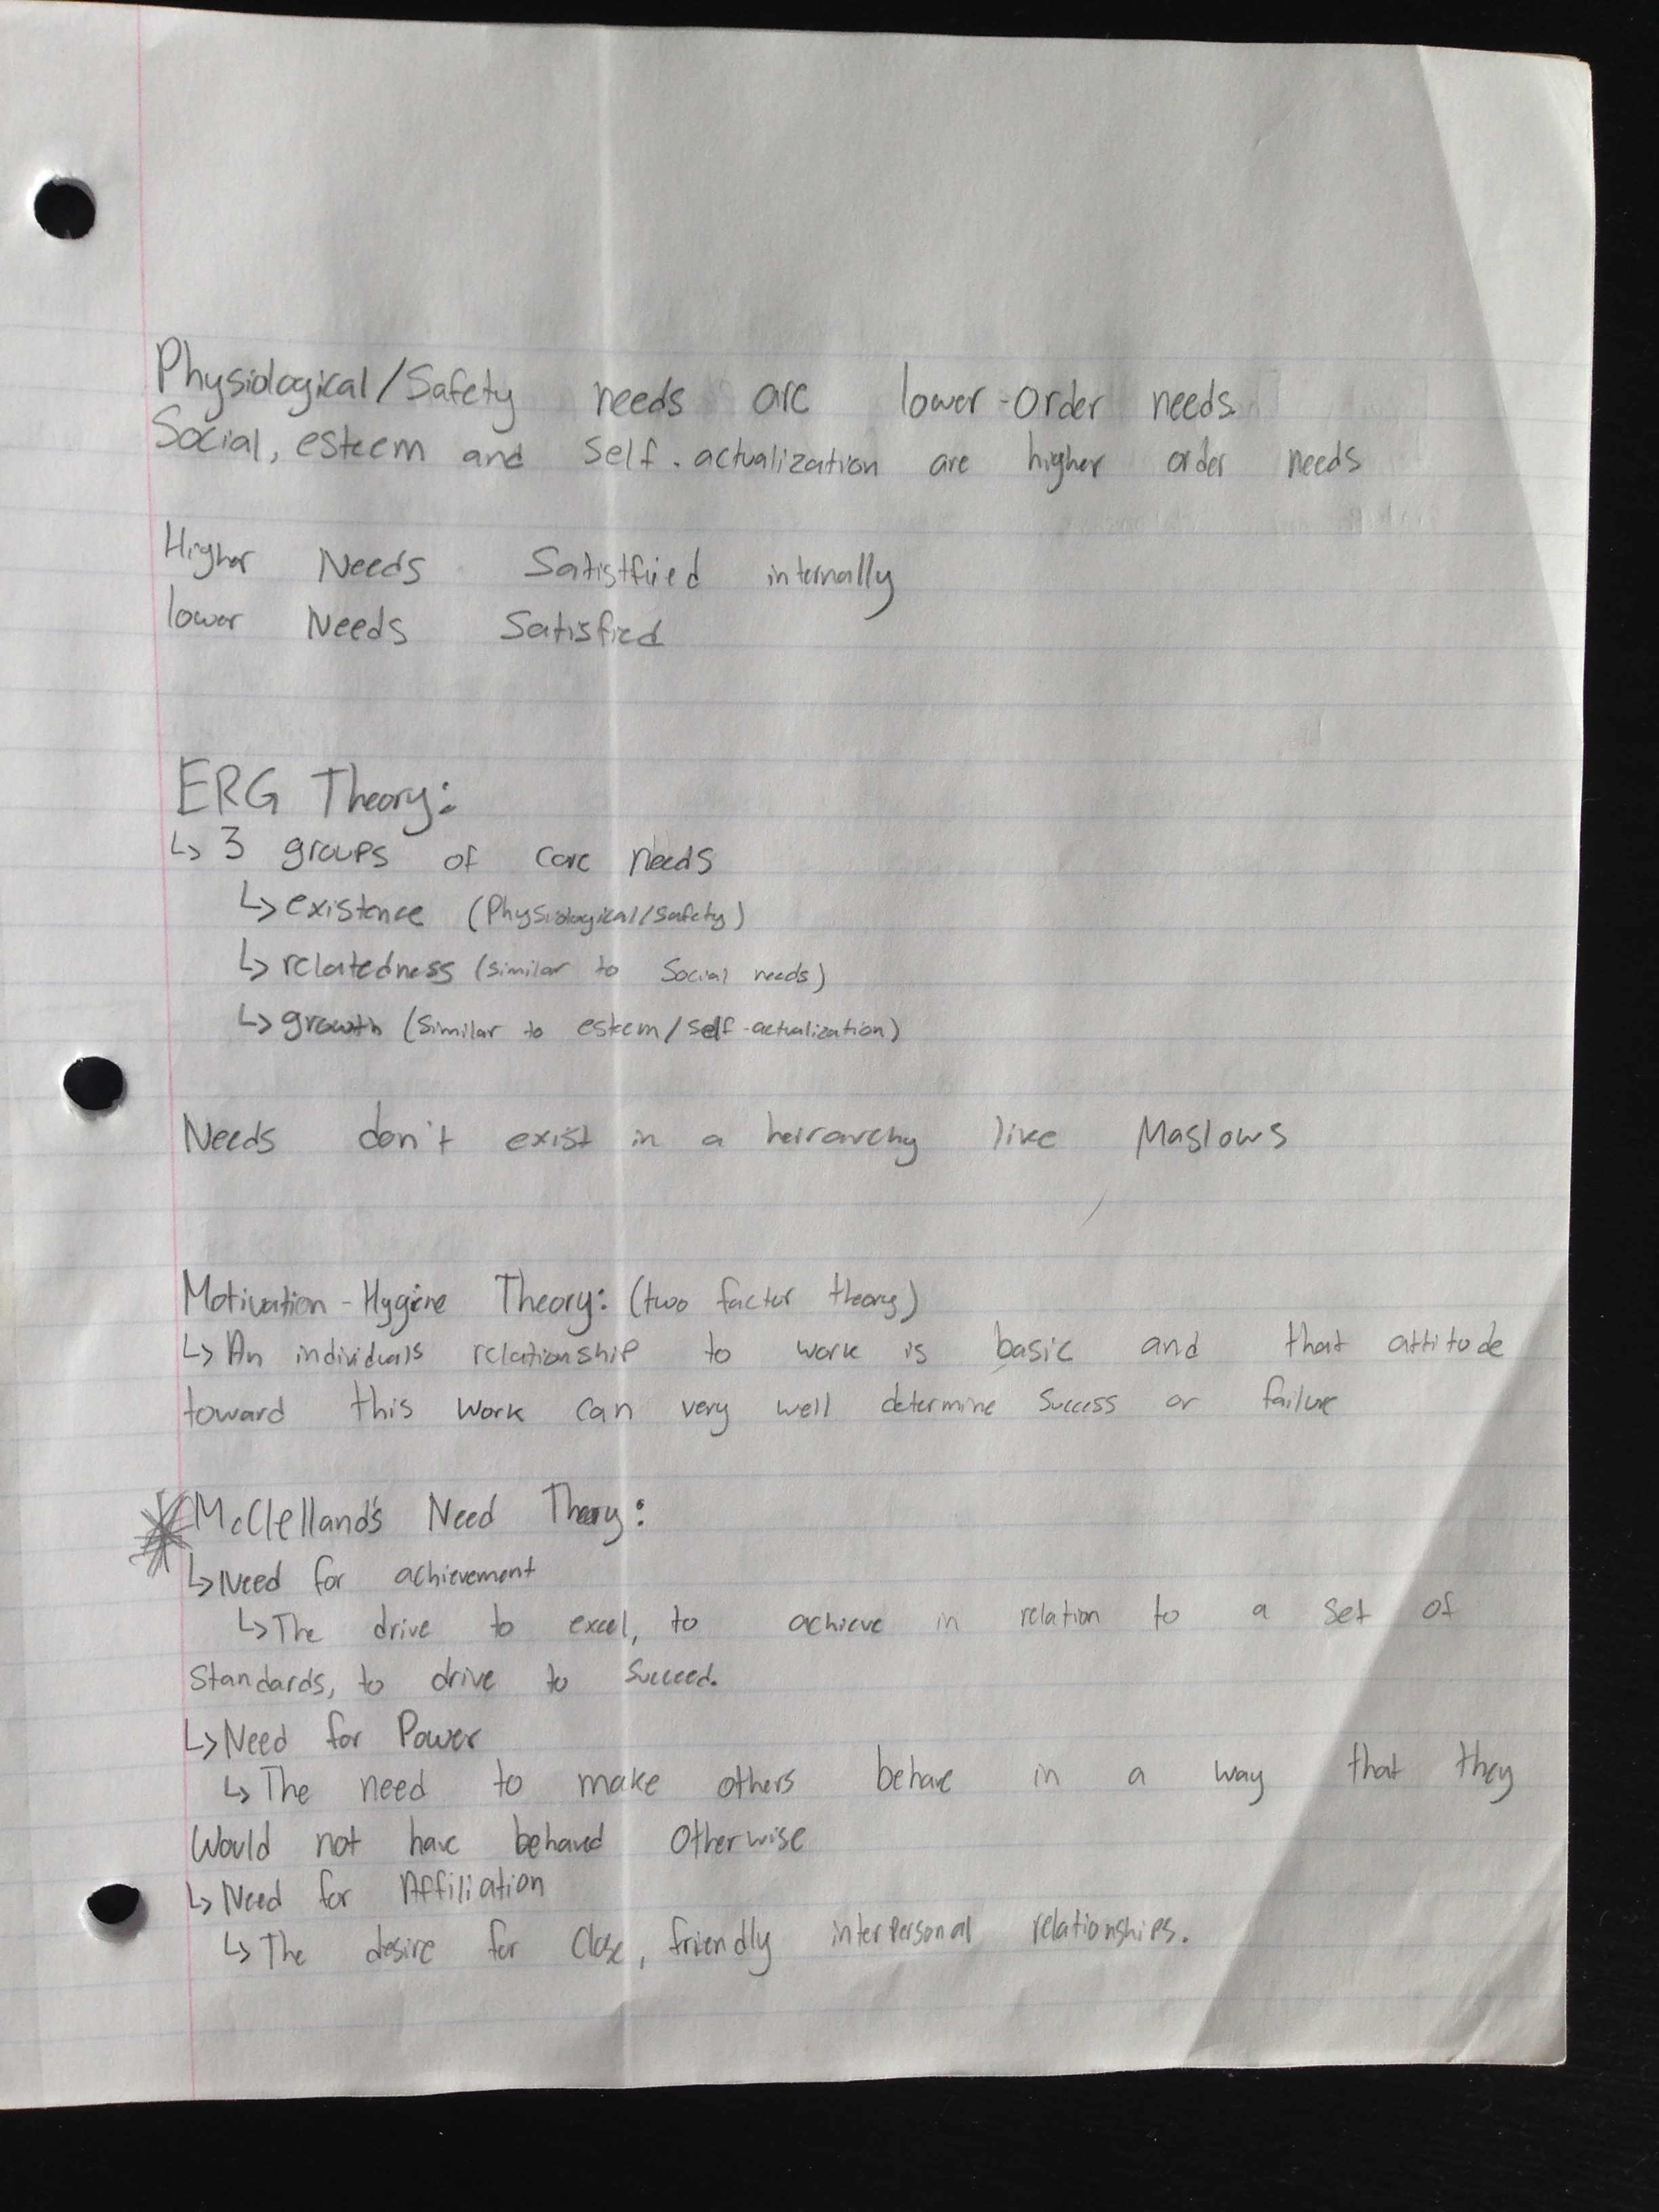 Physiological/Safety needs are lower-order needs
Social, esteem and self-actualization are higher order needs
Higher Needs Satistfied internally
lower Needs Satisfied
ERG Theory:
↳ 3 groups of core needs
↳ existence (Physiological/safety)
↳ relatedness (similar to Social needs)
↳ growth (similar to esteem/self-actualization)
Needs don't exist in a heirarchy like Maslows
Motivation-Hygiene Theory: (two factor theory)
↳ An individuals relationship to work is basic and that attitude
toward this work can very well determine success or failure
McClelland's Need Theory:
↳ Need for achievement
↳ The drive to excel, to achieve in relation to a set of
Standards, to drive to succeed.
↳ Need for Power
↳ The need to make others behave in a way that they
Would not have behaved otherwise
↳ Need for Affiliation
↳ The desire for close, friendly interpersonal relationships.